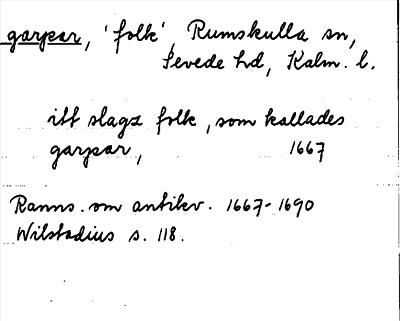 garpar, 'folk', Rumskulla sn,
Sevede hd, Kalm. l.
itt slagz folk, som kallades
garpar, 1667
Ranns. om antikv. 1667-1690
Wilstadius s. 118.